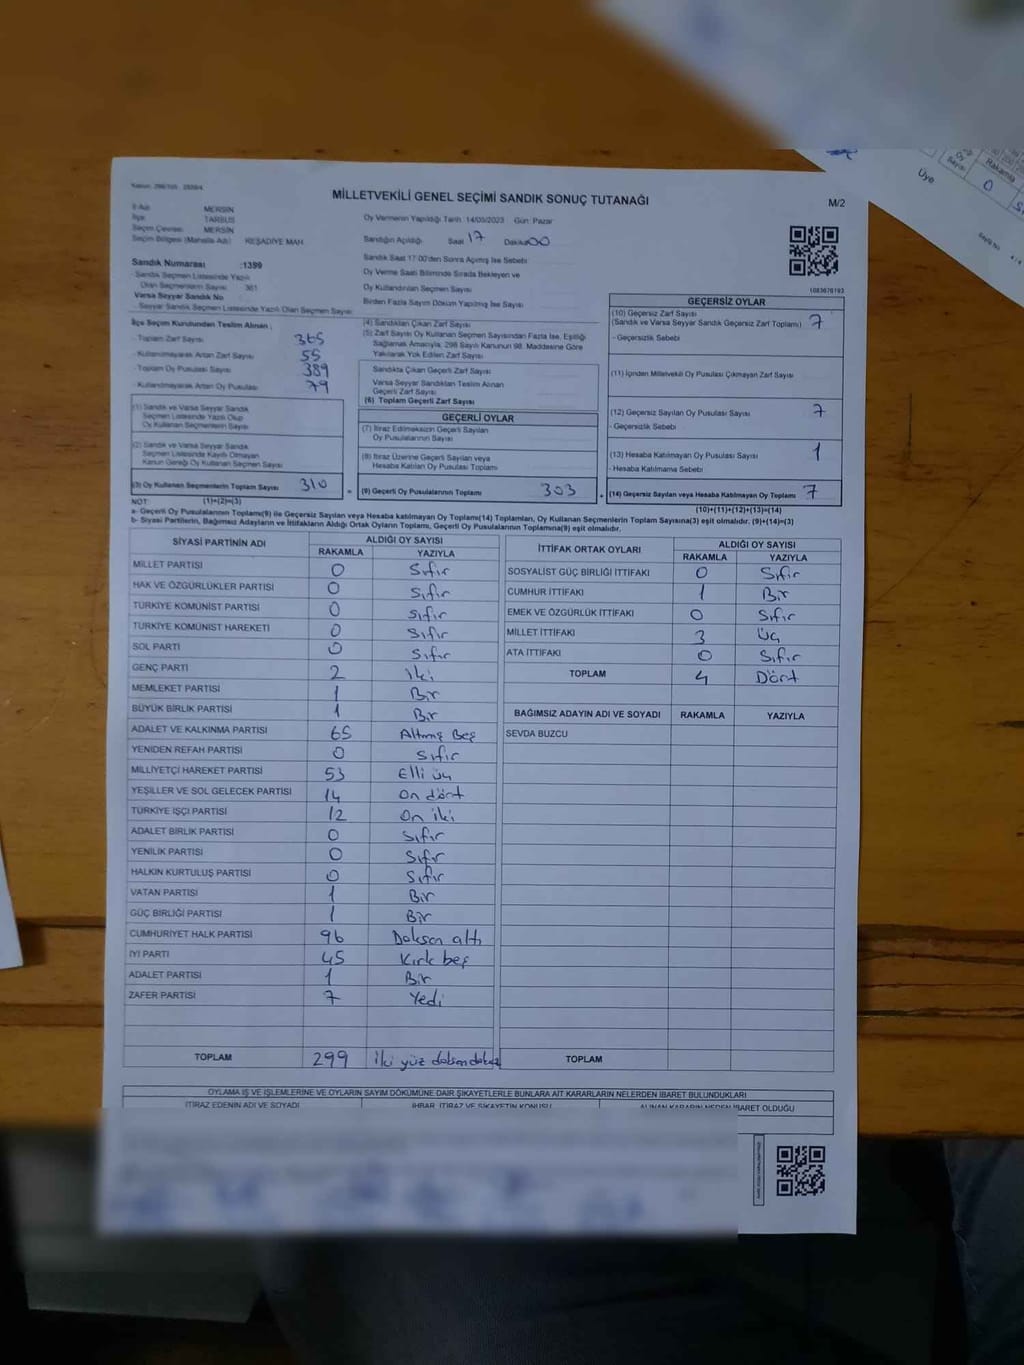 MİLLETVEKİLİ GENEL SEÇİMİ SANDIK SONUÇ TUTANAĞI
M/2
İli Adı: MERSİN
İlçe: TARSUS
Seçim Çevresi: MERSİN
Seçim Bölgesi (Mahalle Adı) REŞADİYE MAH.
Sandık Numarası :1399
- Sandık Seçmen Listesinde Yazılı
Olan Seçmenlerin Sayısı 361
Varsa Seyyar Sandık No
- Seyyar Sandık Seçmen Listesinde Yazılı Olan Seçmen Sayısı:
Oy Vermenin Yapıldığı Tarih 14/05/2023 Gün: Pazar
Sandığın Açıldığı Saat 17 Dakika 00
Sandık Saat 17:00'den Sonra Açılmış İse Sebebi
Oy Verme Saati Bitiminde Sırada Bekleyen ve
Oy Kullandırılan Seçmen Sayısı
Birden Fazla Sayım Döküm Yapılmış İse Sayısı
1083676193
İlçe Seçim Kurulundan Teslim Alınan ;
- Toplam Zarf Sayısı 365
- Kullanılmayarak Artan Zarf Sayısı 55
- Toplam Oy Pusulası Sayısı 389
- Kullanılmayarak Artan Oy Pusulası 79
(1) Sandık ve Varsa Seyyar Sandık
Seçmen Listesinde Yazılı Olup
Oy Kullanan Seçmenlerin Sayısı
(2) Sandık ve Varsa Seyyar Sandık
Seçmen Listesinde Kayıtlı Olmayan
Kanun Gereği Oy Kullanan Seçmen Sayısı
(3) Oy Kullanan Seçmenlerin Toplam Sayısı 310
(4) Sandıktan Çıkan Zarf Sayısı
(5) Zarf Sayısı Oy Kullanan Seçmen Sayısından Fazla İse, Eşitliği
Sağlamak Amacıyla, 298 Sayılı Kanunun 98. Maddesine Göre
Yakılarak Yok Edilen Zarf Sayısı
Sandıkta Çıkan Geçerli Zarf Sayısı
Varsa Seyyar Sandıktan Teslim Alınan
Geçerli Zarf Sayısı
(6) Toplam Geçerli Zarf Sayısı
GEÇERLİ OYLAR
(7) İtiraz Edilmeksizin Geçerli Sayılan
Oy Pusulalarının Sayısı
(8) İtiraz Üzerine Geçerli Sayılan veya
Hesaba Katılan Oy Pusulası Toplamı
(9) Geçerli Oy Pusulalarının Toplamı 303
GEÇERSİZ OYLAR
(10) Geçersiz Zarf Sayısı
(Sandık ve Varsa Seyyar Sandık Geçersiz Zarf Toplamı) 7
- Geçersizlik Sebebi
(11) İçinden Milletvekili Oy Pusulası Çıkmayan Zarf Sayısı
(12) Geçersiz Sayılan Oy Pusulası Sayısı 7
- Geçersizlik Sebebi
(13) Hesaba Katılmayan Oy Pusulası Sayısı 1
- Hesaba Katılmama Sebebi
(14) Geçersiz Sayılan veya Hesaba Katılmayan Oy Toplamı 7
NOT: (1)+(2)=(3)
(10)+(11)+(12)+(13)=(14)
a- Geçerli Oy Pusulalarının Toplamı(9) ile Geçersiz Sayılan veya Hesaba Katılmayan Oy Toplamı(14) Toplamları, Oy Kullanan Seçmenlerin Toplam Sayısına(3) eşit olmalıdır. (9)+(14)=(3)
b- Siyasi Partilerin, Bağımsız Adayların ve İttifakların Aldığı Ortak Oyların Toplamı, Geçerli Oy Pusulalarının Toplamına(9) eşit olmalıdır.
SİYASİ PARTİNİN ADI ALDIĞI OY SAYISI
RAKAMLA YAZIYLA
MİLLET PARTİSİ 0 Sıfır
HAK VE ÖZGÜRLÜKLER PARTİSİ 0 Sıfır
TÜRKİYE KOMÜNİST PARTİSİ 0 Sıfır
TÜRKİYE KOMÜNİST HAREKETİ 0 Sıfır
SOL PARTİ 0 Sıfır
GENÇ PARTİ 2 İki
MEMLEKET PARTİSİ 1 Bir
BÜYÜK BİRLİK PARTİSİ 1 Bir
ADALET VE KALKINMA PARTİSİ 65 Altmış Beş
YENİDEN REFAH PARTİSİ 0 Sıfır
MİLLİYETÇİ HAREKET PARTİSİ 53 Elli üç
YEŞİLLER VE SOL GELECEK PARTİSİ 14 On dört
TÜRKİYE İŞÇİ PARTİSİ 12 On iki
ADALET BİRLİK PARTİSİ 0 Sıfır
YENİLİK PARTİSİ 0 Sıfır
HALKIN KURTULUŞ PARTİSİ 0 Sıfır
VATAN PARTİSİ 1 Bir
GÜÇ BİRLİĞİ PARTİSİ 1 Bir
CUMHURİYET HALK PARTİSİ 96 Doksan altı
İYİ PARTİ 45 Kırk beş
ADALET PARTİSİ 1 Bir
ZAFER PARTİSİ 7 Yedi
TOPLAM 299 İki yüz doksan dokuz
İTTİFAK ORTAK OYLARI ALDIĞI OY SAYISI
RAKAMLA YAZIYLA
SOSYALİST GÜÇ BİRLİĞİ İTTİFAKI 0 Sıfır
CUMHUR İTTİFAKI 1 Bir
EMEK VE ÖZGÜRLÜK İTTİFAKI 0 Sıfır
MİLLET İTTİFAKI 3 Üç
ATA İTTİFAKI 0 Sıfır
TOPLAM 4 Dört
BAĞIMSIZ ADAYIN ADI VE SOYADI RAKAMLA YAZIYLA
SEVDA BUZCU
TOPLAM
OYLAMA İŞ VE İŞLEMLERİNE VE OYLARIN SAYIM DÖKÜMÜNE DAİR ŞİKAYETLERLE BUNLARA AİT KARARLARIN NELERDEN İBARET BULUNDUKLARI
İTİRAZ EDENİN ADI VE SOYADI İHBAR, İTİRAZ VE ŞİKAYETİN KONUSU ALINAN KARARIN NEDEN İBARET OLDUĞU
Üye
Oy
Sayısı
Rakamla
0